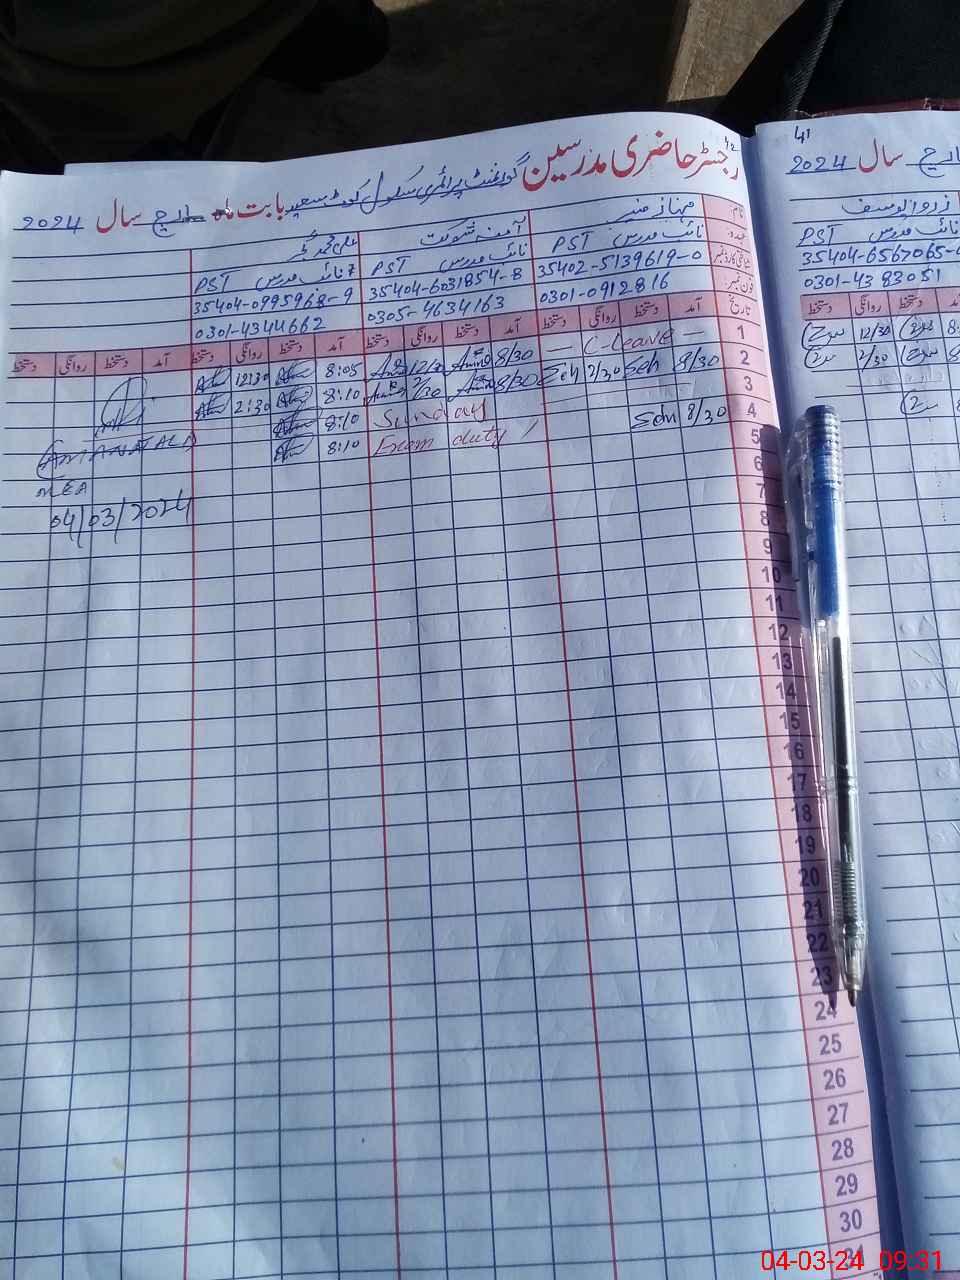 42
رجسٹر حاضری مدرسین گورنمنٹ پرائمری سکول کوٹ سعید بابت ماہ مارچ سال 2024
نام مہناز آمنہ شوکت علی محمد
عہدہ نائب مدرس PST نائب مدرس PST نائب مدرس PST
شناختی کارڈ نمبر 35402-5139619-0 35404-6031854-8 35404-0995968-9
فون نمبر 0301-0912816 0305-4634163 0301-4344662
تاریخ آمد دستخط روانگی دستخط آمد دستخط روانگی دستخط آمد دستخط روانگی دستخط آمد دستخط روانگی دستخط
1 — C-Leave — 8/30 12/30 8:05 12:30
2 8/30 2/30 8/30 2/30 8:10 2:30
3 Sunday 8:10
4 8/30 Exam duty 8:10
5
6
7
8
9
10
11
12
13
14
15
16
17
18
19
20
21
22
23
24
25
26
27
28
29
30
31
AMANAT ALI
MEA
04/03/2024
41
مارچ سال 2024
یوسف
نائب مدرس PST
35404-6567065-
0301-4383051
آمد دستخط روانگی دستخط
12/30
2/30
04-03-24 09:31